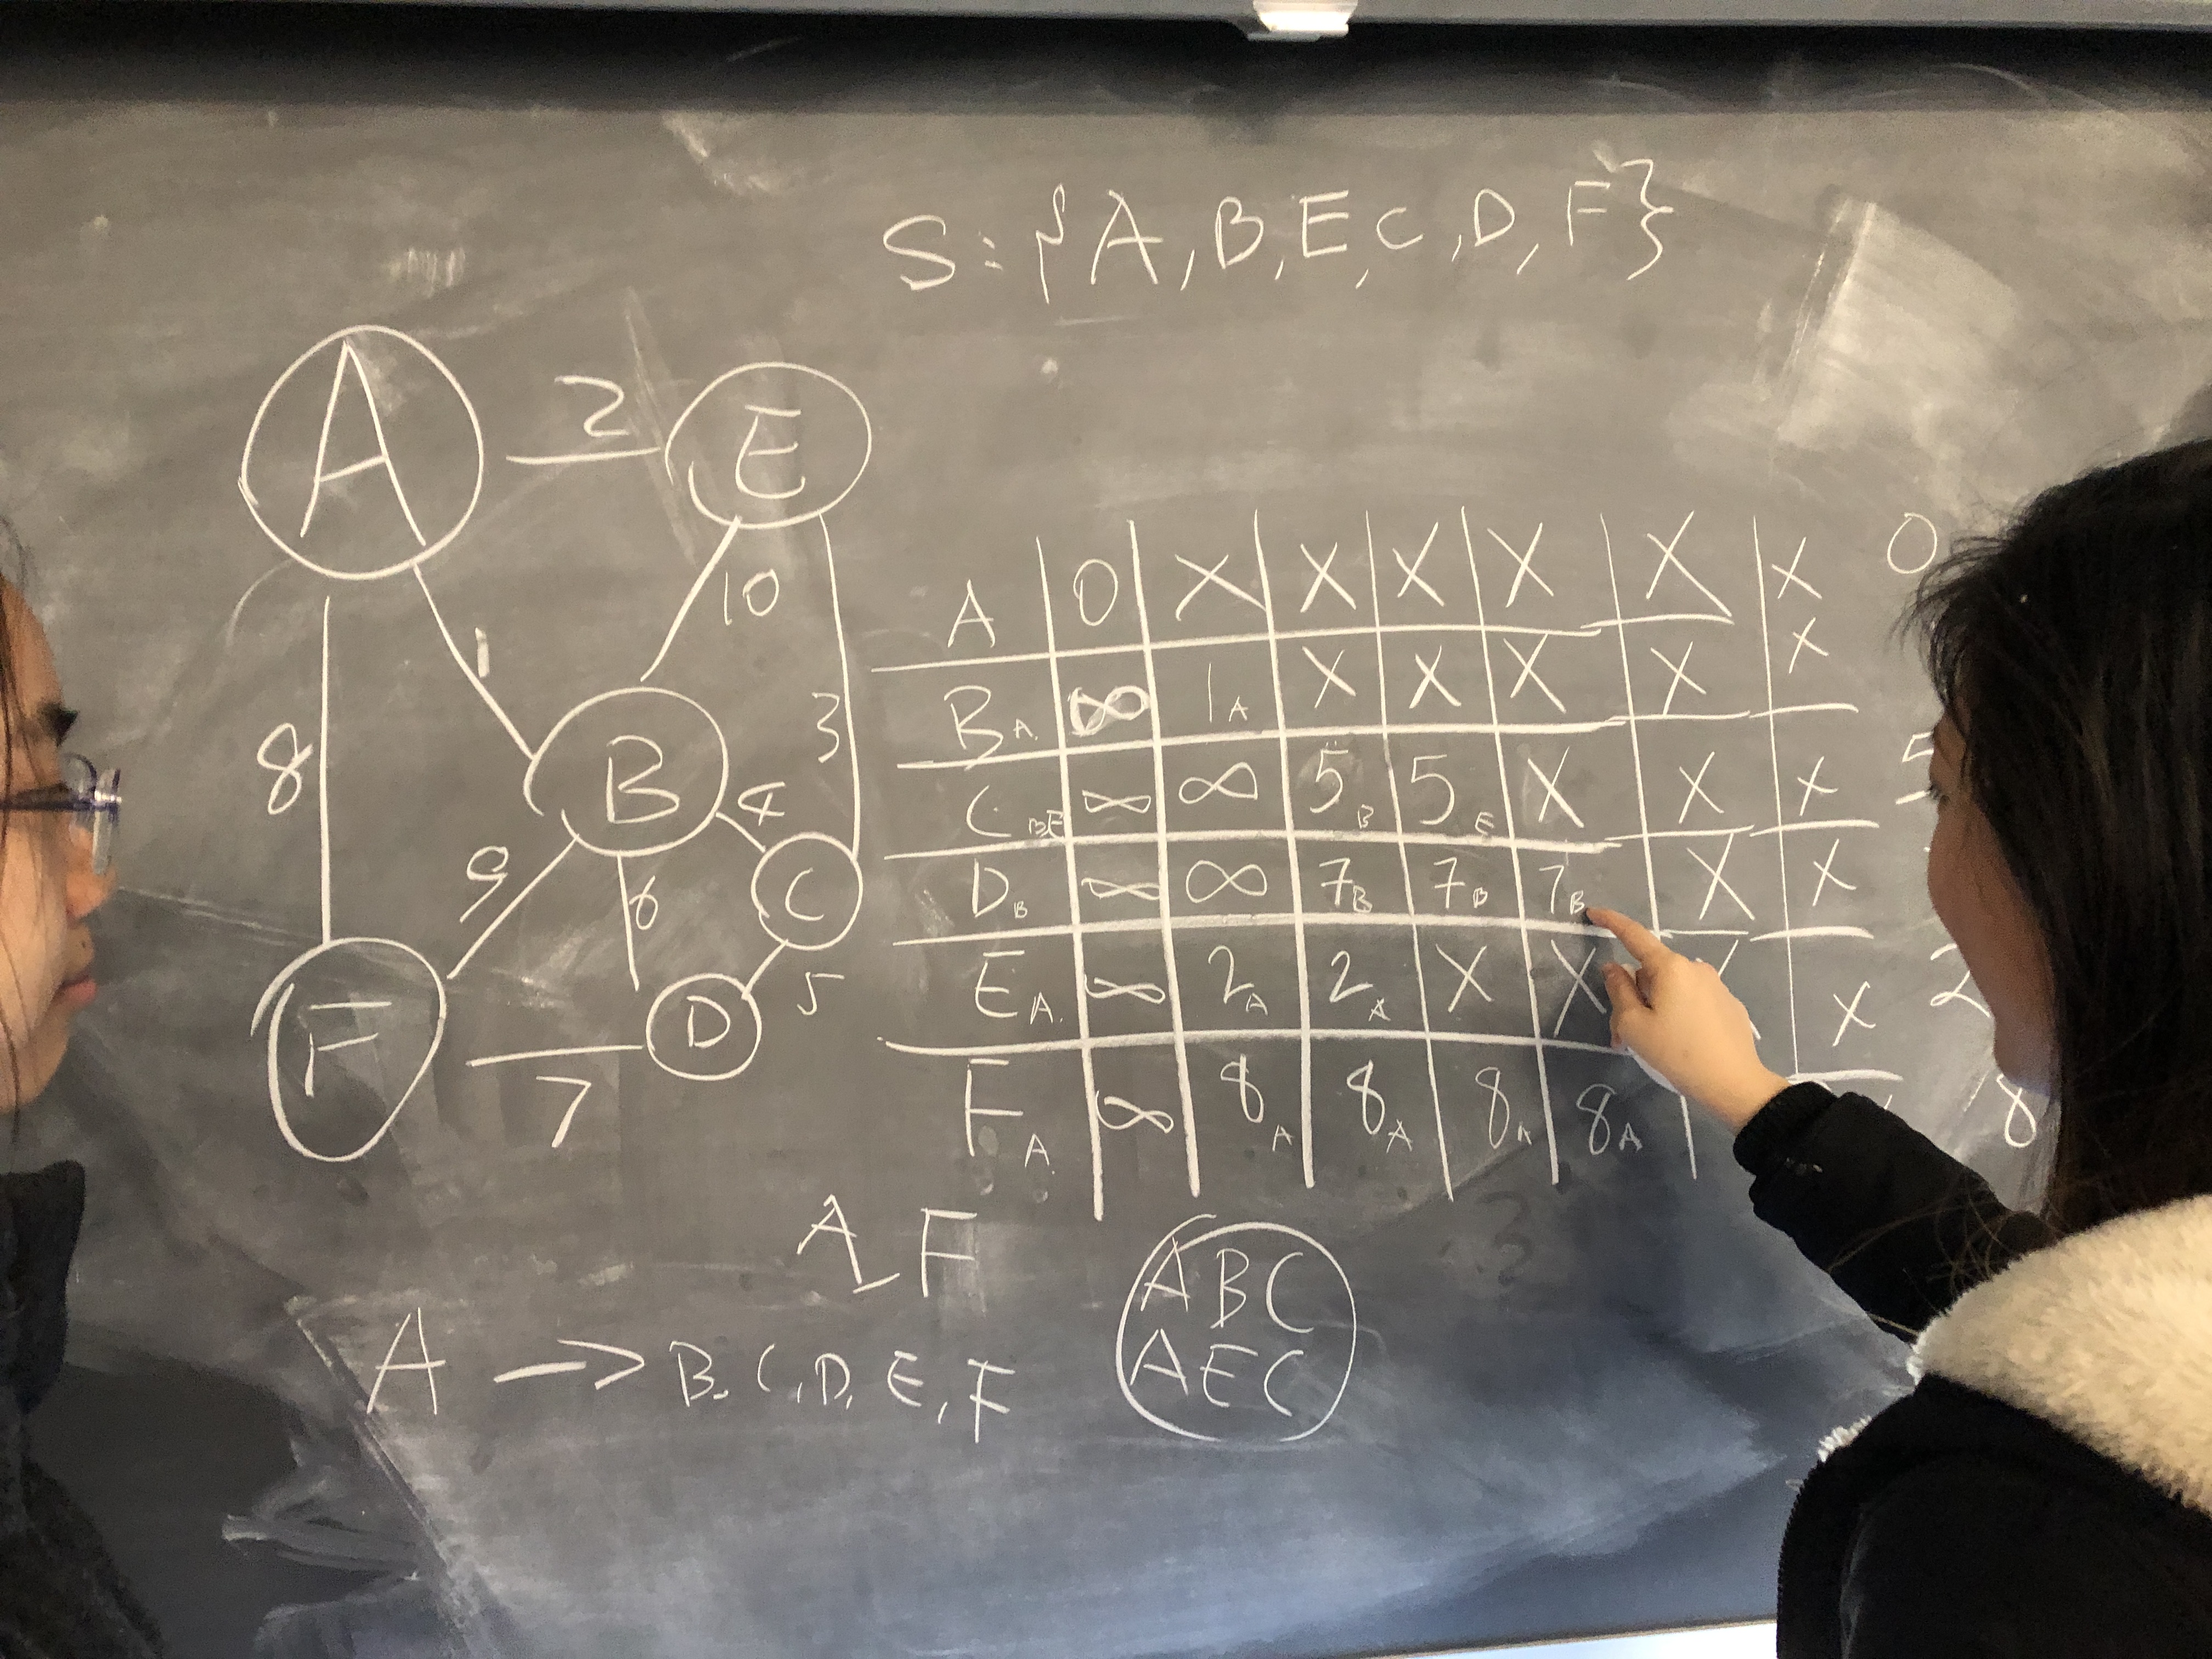 S: {A, B, E, C, D, F}
A 2 E
10
1
8
3
B
4
C
9
6
5
F
7
D
A 0 X X X X X X 0
B A. ∞ 1 A X X X X X
C BE ∞ ∞ 5 B 5 E X X X 5
D B ∞ ∞ 7 B 7 B 7 B X X
E A. ∞ 2 A 2 A X X X 2
F A. ∞ 8 A 8 A 8 A 8 A 8
A F
A → B. C, D, E, F
ABC
AEC